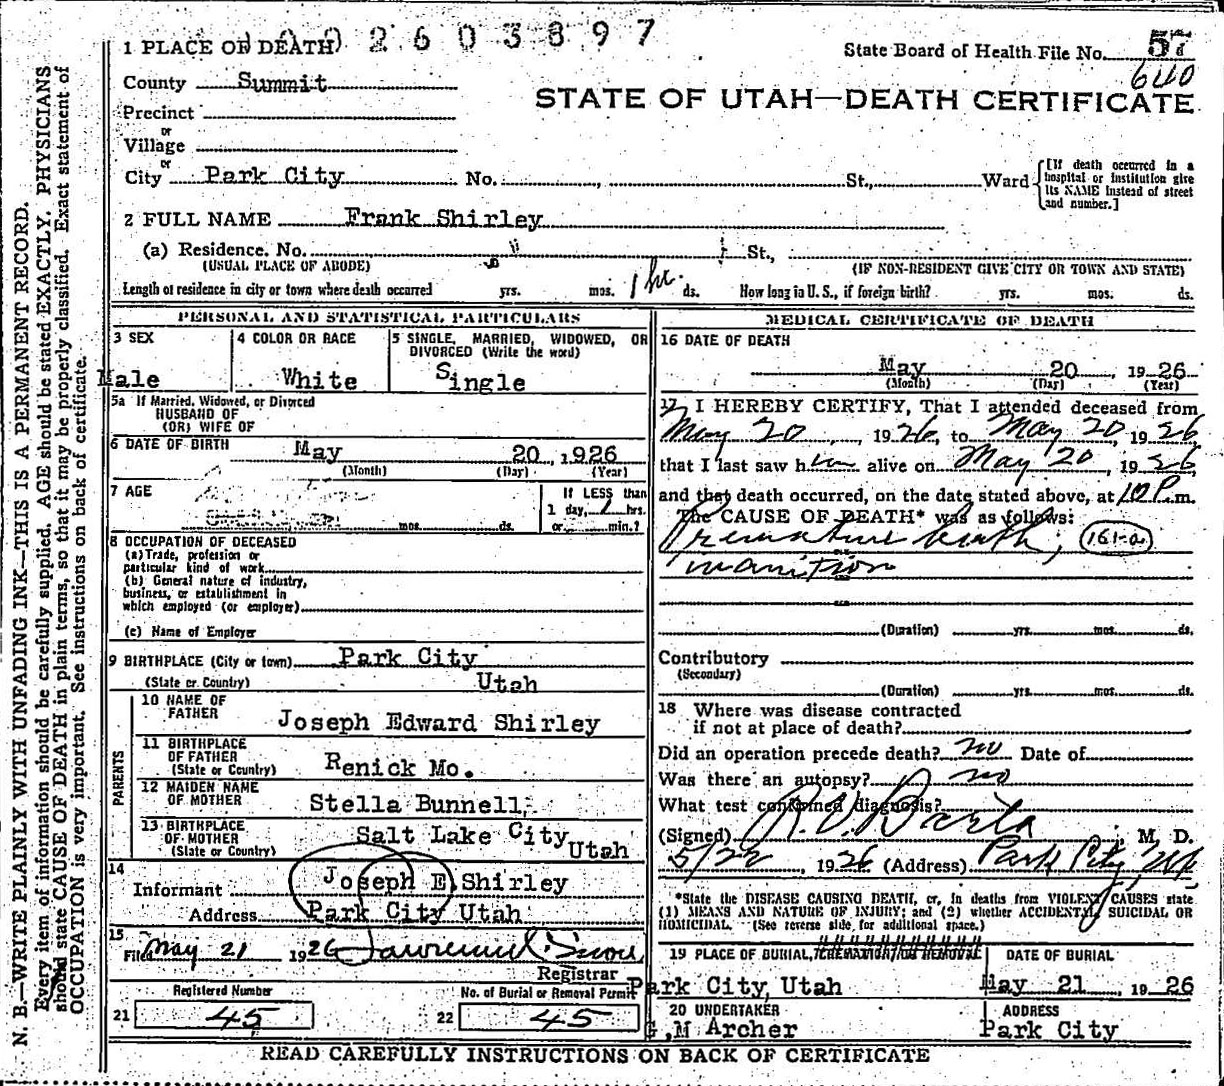 1002603897
1 PLACE OF DEATH
State Board of Health File No. 57
640
County Summit
STATE OF UTAH—DEATH CERTIFICATE
Precinct
or
Village
or
City Park City No. , St., Ward
[If death occurred in a hospital or institution give its NAME instead of street and number.]
2 FULL NAME Frank Shirley
(a) Residence. No. St.,
(USUAL PLACE OF ABODE) (IF NON-RESIDENT GIVE CITY OR TOWN AND STATE)
Length of residence in city or town where death occurred yrs. mos. 1 hr. ds. How long in U. S., if foreign birth? yrs. mos. ds.
PERSONAL AND STATISTICAL PARTICULARS
3 SEX
Male
4 COLOR OR RACE
White
5 SINGLE, MARRIED, WIDOWED, OR
DIVORCED (Write the word)
Single
5a If Married, Widowed, or Divorced
HUSBAND OF
(OR) WIFE OF
6 DATE OF BIRTH May 20, 1926
(Month) (Day) (Year)
7 AGE
mos. ds.
If LESS than
1 day, 1 hrs.
or min.?
8 OCCUPATION OF DECEASED
(a) Trade, profession or
particular kind of work
(b) General nature of industry,
business, or establishment in
which employed (or employer)
(c) Name of Employer
9 BIRTHPLACE (City or town) Park City
(State or Country) Utah
PARENTS
10 NAME OF
FATHER Joseph Edward Shirley
11 BIRTHPLACE
OF FATHER
(State or Country) Renick Mo.
12 MAIDEN NAME
OF MOTHER Stella Bunnell
13 BIRTHPLACE
OF MOTHER
(State or Country) Salt Lake City Utah
14
Informant Joseph E. Shirley
Address Park City Utah
15
Filed May 21 1926
Registrar
Registered Number
21 45
No. of Burial or Removal Permit
22 45
MEDICAL CERTIFICATE OF DEATH
16 DATE OF DEATH
May 20 1926
(Month) (Day) (Year)
17 I HEREBY CERTIFY, That I attended deceased from
May 20, 1926, to May 20, 1926,
that I last saw him alive on May 20, 1926
and that death occurred, on the date stated above, at 10 P.m.
The CAUSE OF DEATH* was as follows:
Premature birth; 161-a
inanition
(Duration) yrs. mos. ds.
Contributory
(Secondary)
(Duration) yrs. mos. ds.
18 Where was disease contracted
if not at place of death?
Did an operation precede death? no Date of
Was there an autopsy? no
What test confirmed diagnosis?
(Signed) , M. D.
5/22, 1926 (Address) Park City, Utah
*State the DISEASE CAUSING DEATH, or, in deaths from VIOLENT CAUSES state
(1) MEANS AND NATURE OF INJURY; and (2) whether ACCIDENTAL, SUICIDAL OR
HOMICIDAL. (See reverse side for additional space.)
19 PLACE OF BURIAL, CREMATION OR REMOVAL
Park City, Utah
DATE OF BURIAL
May 21 1926
20 UNDERTAKER
G.M Archer
ADDRESS
Park City
READ CAREFULLY INSTRUCTIONS ON BACK OF CERTIFICATE
N. B.—WRITE PLAINLY WITH UNFADING INK—THIS IS A PERMANENT RECORD.
Every item of information should be carefully supplied. AGE should be stated EXACTLY. PHYSICIANS
should state CAUSE OF DEATH in plain terms, so that it may be properly classified. Exact statement of
OCCUPATION is very important. See instructions on back of certificate.